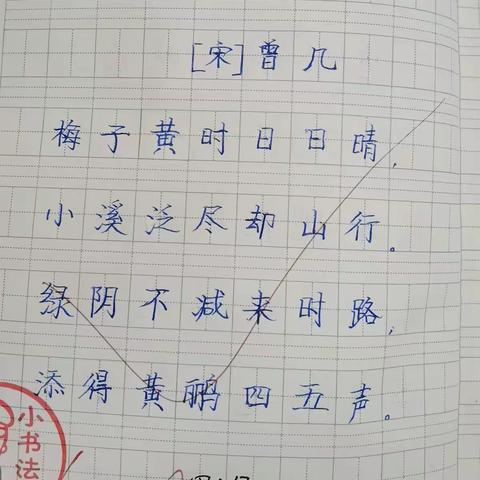 [宋]曾几
梅子黄时日日晴，
小溪泛尽却山行。
绿阴不减来时路，
添得黄鹂四五声。
小书法